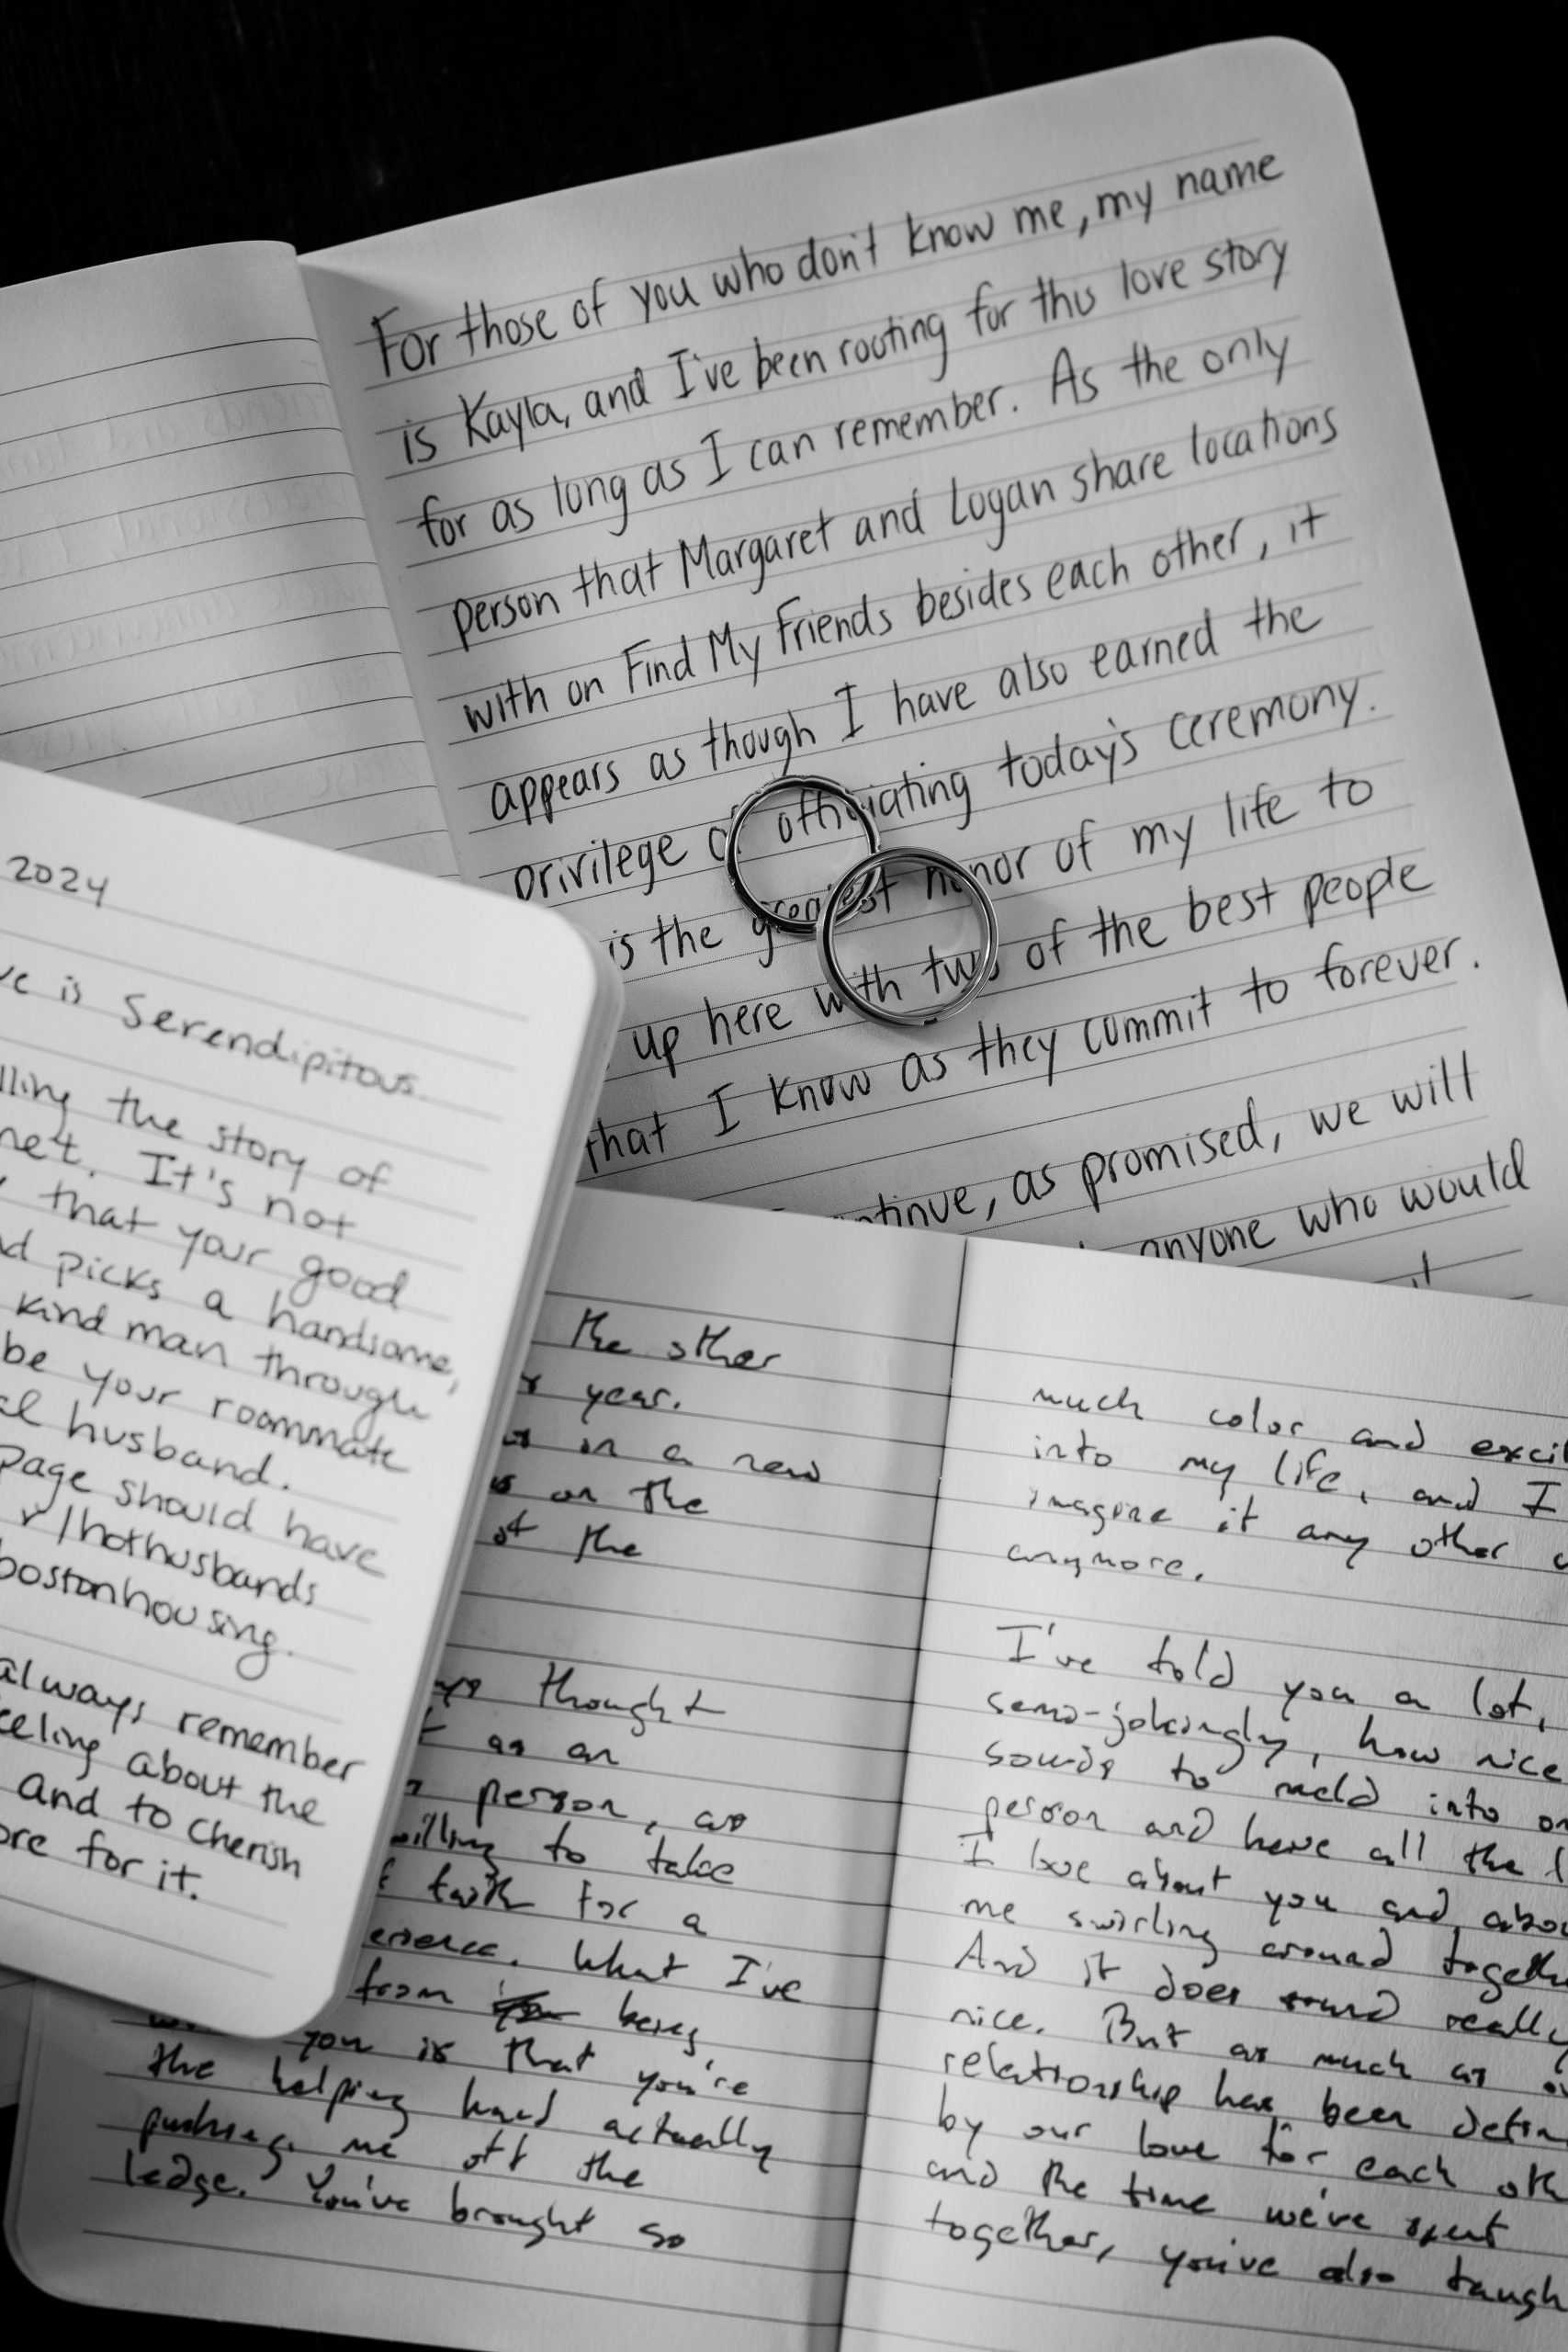 For those of you who don't know me, my name
is Kayla, and I've been rooting for this love story
for as long as I can remember. As the only
person that Margaret and Logan share locations
with on Find My Friends besides each other, it
appears as though I have also earned the
privilege of officiating today's ceremony.
is the greatest honor of my life to
up here with two of the best people
that I know as they commit to forever.
as promised, we will
anyone who would
2024
is Serendipitous.
the story of
It's not
that your good
picks a handsome,
kind man through
be your roommate
husband.
page should have
r/hothusbands
bostonhousing.
always remember
about the
and to cherish
for it.
the other
year.
in a new
on the
the
thought
as an
person, as
willing to take
faith for a
What I've
from being
you is that you're
the helping hand actually
pushing me off the
ledge. You've brought so
much color and
into my life, and I
imagine it any other
anymore.
I've told you a lot,
semi-jokingly, how nice
sounds to meld into
person and have all the
I love about you and
me swirling around
And it does sound really
nice. But as much as
relationship has been
by our love for each
and the time we've spent
together, you've also